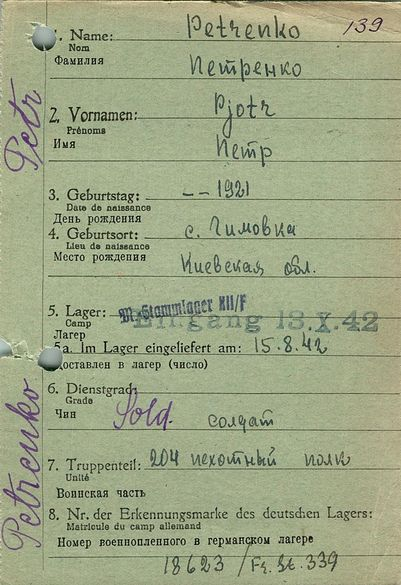 1. Name: Petrenko 139
Nom
Фамилия Петренко
2. Vornamen: Pjotr
Prénoms
Имя Петр
3. Geburtstag: -- 1921
Date de naissance
День рождения
4. Geburtsort: с. Чимовка
Lieu de naissance
Место рождения Киевская обл.
5. Lager: M.-Stammlager XII/F
Camp Eingang 13.X.42
Лагер
5a. Im Lager eingeliefert am: 15.8.42
Доставлен в лагер (число)
6. Dienstgrad: Sold.
Grade
Чин солдат
7. Truppenteil: 204 пехотный полк
Unité
Воинская часть
8. Nr. der Erkennungsmarke des deutschen Lagers:
Matricule du camp allemand
Номер военнопленного в германском лагере
18623 / Fr. St. 339
Petr
Petrenko